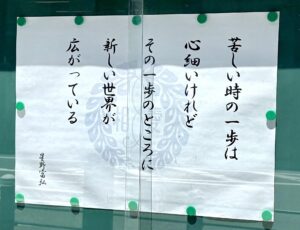 苦しい時の一歩は
心細いけれど
その一歩のところに
新しい世界が
広がっている
星野富弘